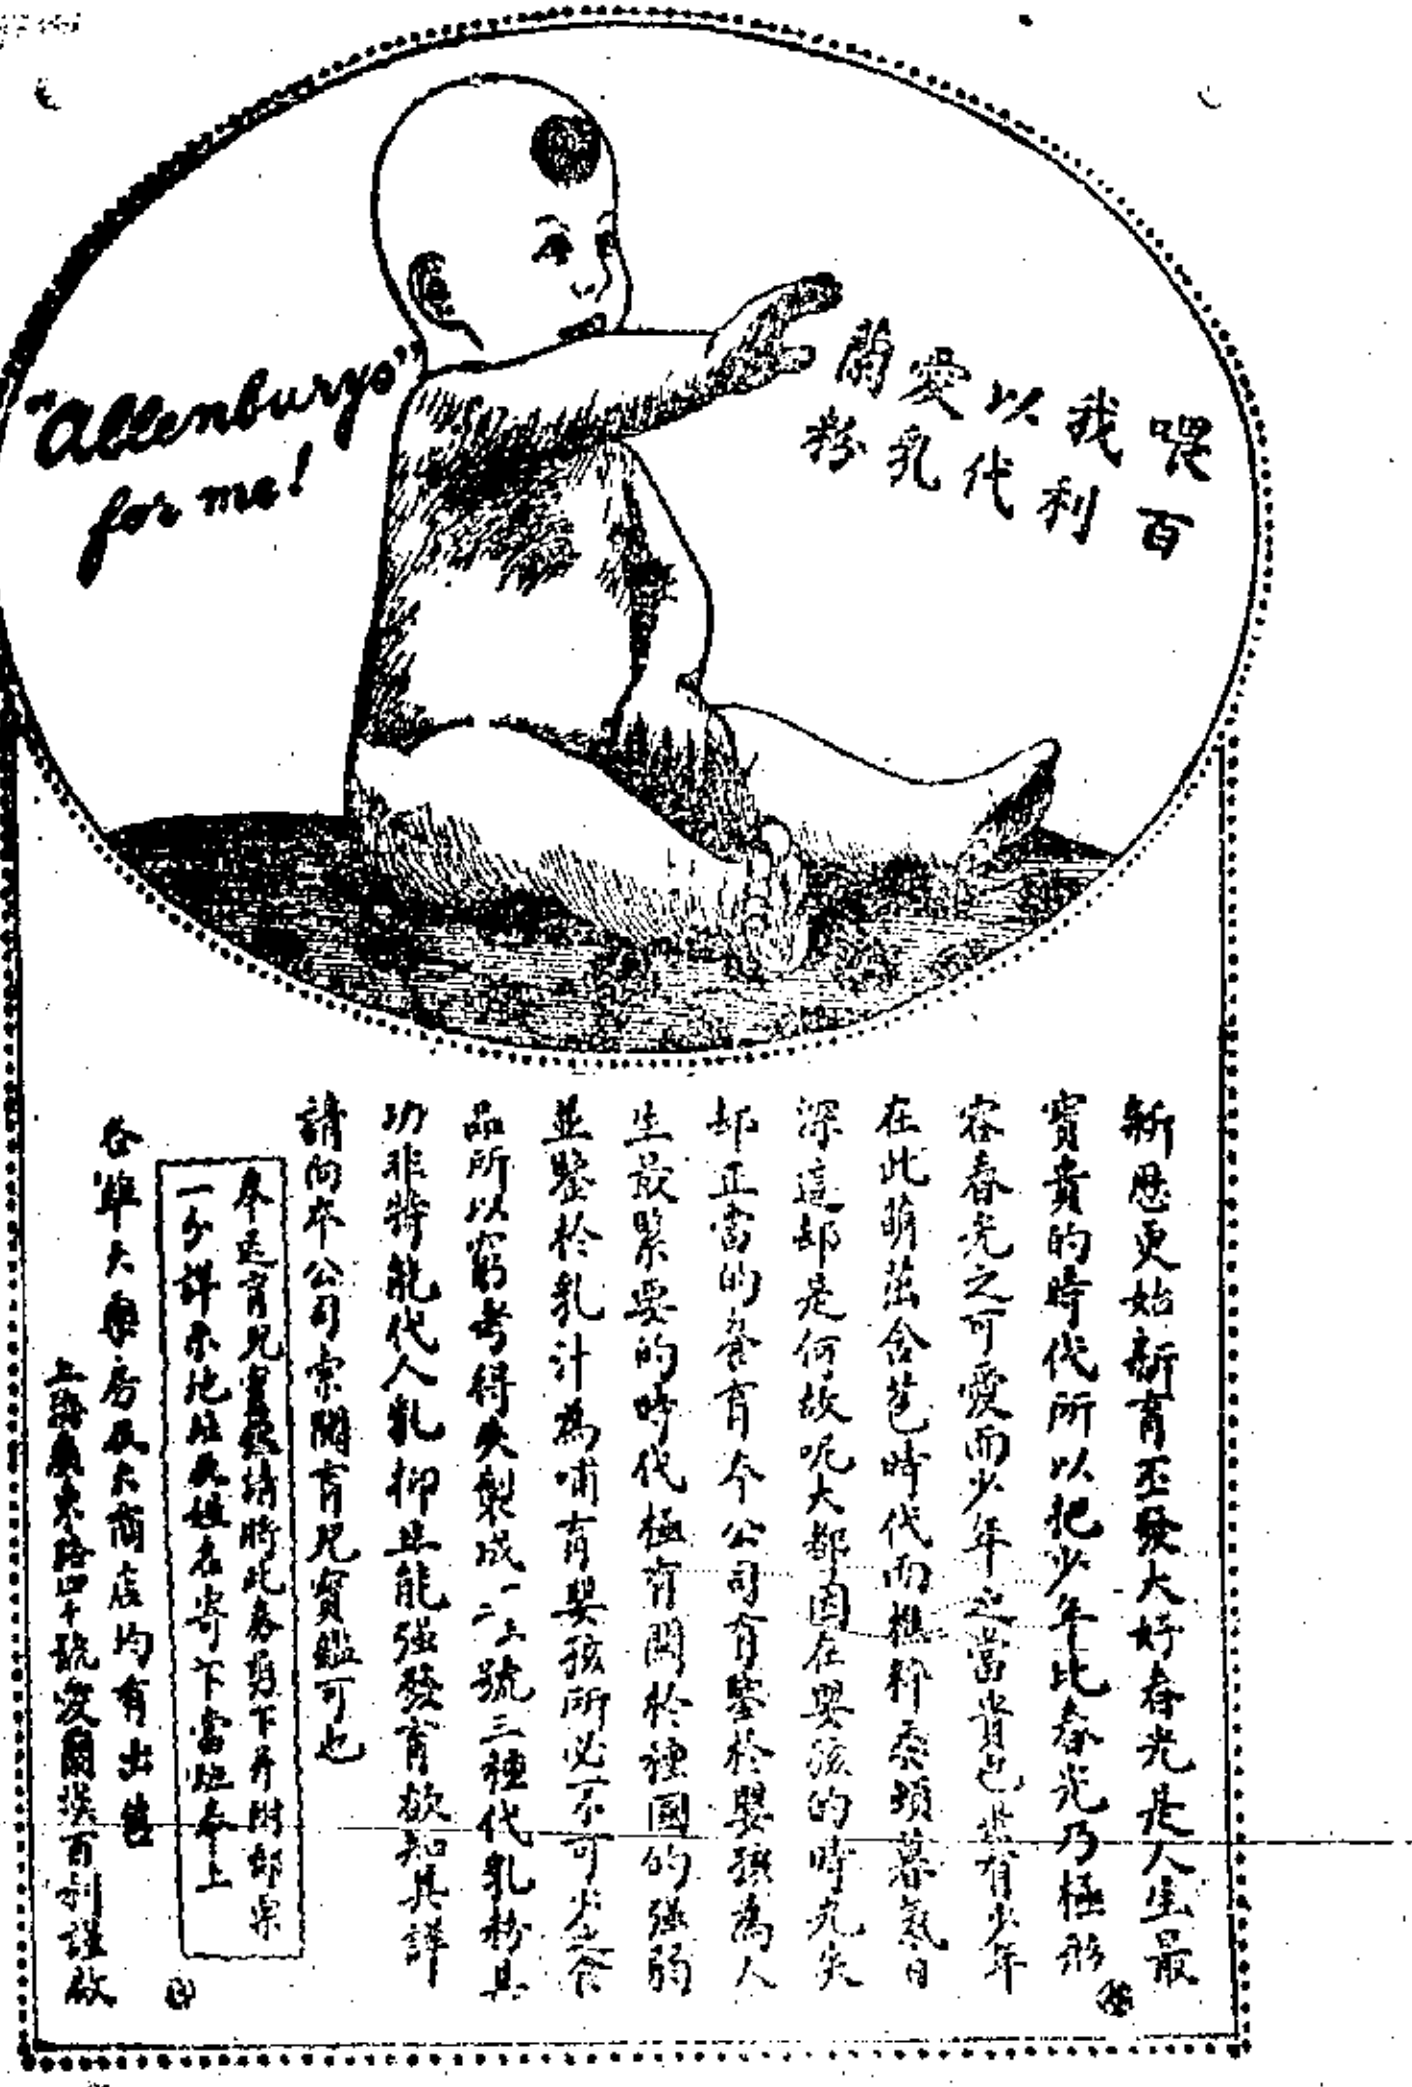 "Allenburys"
for me!
喂我以愛蘭
百利代乳粉
新歷更始新育丕發大好春光是人生最
寶貴的時代所以把少年比春光乃極形
容春光之可愛而少年之當貴也若有少年
在此萌茁含苞時代而樵粹委頓暮氣日
深這却是何故呢大都因在嬰孩的時光失
却正當的養育本公司有鑒於嬰孩為人
生最緊要的時代極有關於種國的強弱
並鑒於乳汁為哺育嬰孩所必不可少之食
品所以窮考得失製成一二三號三種代乳粉其
功非特能代人乳抑且能強發育欲知其詳
請向本公司索閱育兒寶鑑可也
奉送育兒寶鑑請將此券剪下并附郵票
一分詳示地址及姓名寄下當贈奉上
各埠大藥房及大商店均有出售
上海廣東路四十號愛蘭漢百利謹啟